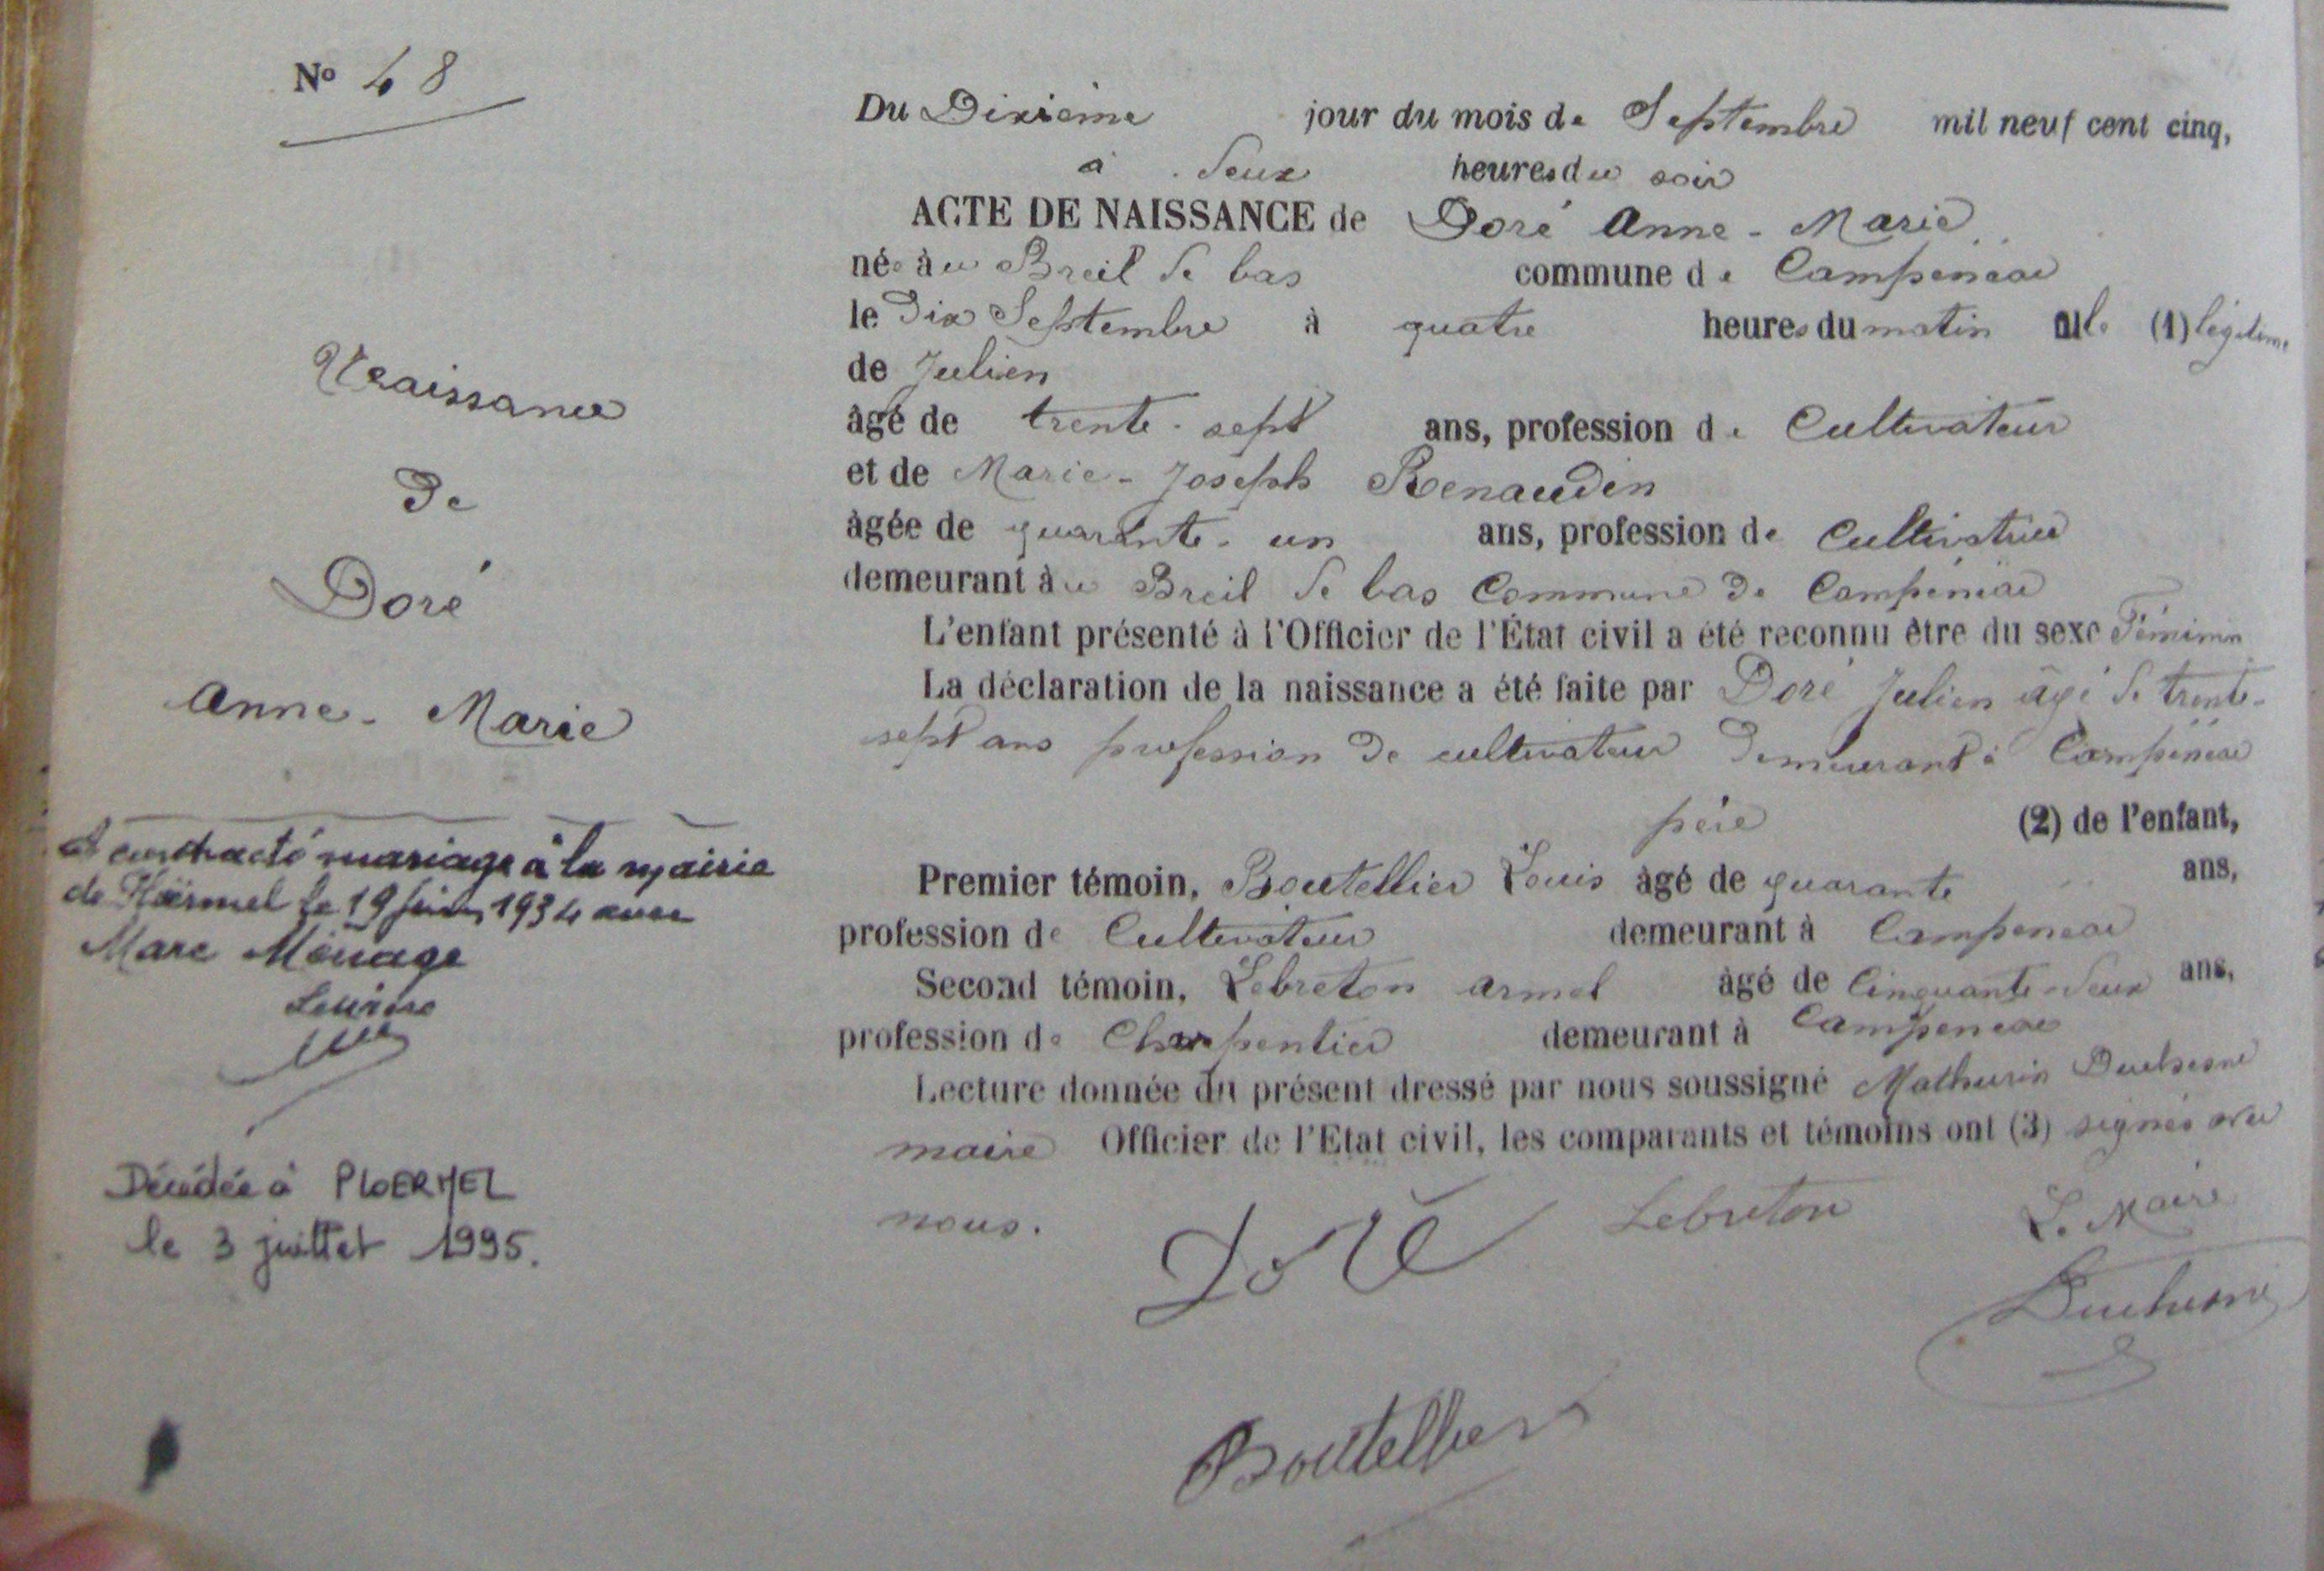 Nº 48
Naissance
De
Doré
Anne-Marie
A contracté mariage à la mairie
de Ploërmel le 19 juin 1934 avec
Marc Ménage
Décédée à PLOERMEL
le 3 juillet 1995.
Du Dixième jour du mois de Septembre mil neuf cent cinq,
à deux heures du soir
ACTE DE NAISSANCE de Doré Anne-Marie
née au Breil de bas commune de Campénéac
le Dix Septembre à quatre heures du matin fille (1) légitime
de Julien
âgé de trente-sept ans, profession de Cultivateur
et de Marie-Joseph Renaudin
âgée de quarante-un ans, profession de Cultivatrice
demeurant au Breil de bas Commune de Campénéac
L'enfant présenté à l'Officier de l'État civil a été reconnu être du sexe Féminin
La déclaration de la naissance a été faite par Doré Julien âgé de trente-
sept ans profession de cultivateur demeurant à Campénéac
père (2) de l'enfant,
Premier témoin, Boutellier Louis âgé de quarante ans,
profession de Cultivateur demeurant à Campénéac
Second témoin, Lebreton Armel âgé de Cinquante-deux ans,
profession de Charpentier demeurant à Campénéac
Lecture donnée du présent dressé par nous soussigné Mathurin Duchesne
maire Officier de l'Etat civil, les comparants et témoins ont (3) signés avec
nous.
Doré
Lebreton
Le Maire
Duchesne
Boutellier